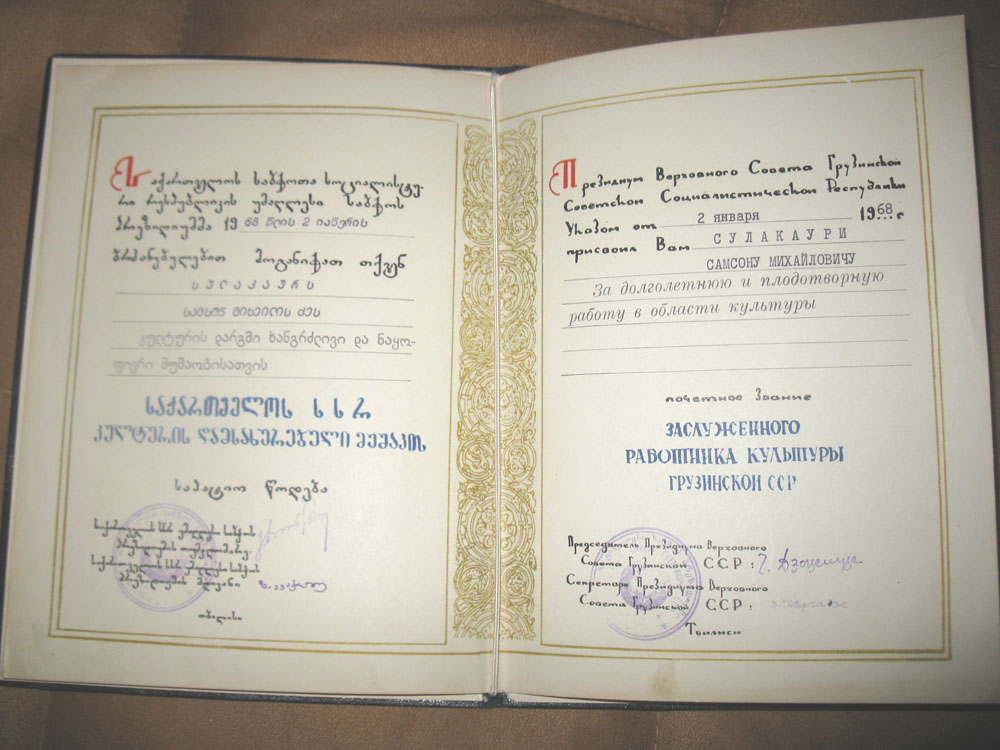 საქართველოს საბჭოთა სოციალისტუ-
რი რესპუბლიკის უმაღლესი საბჭოს
პრეზიდიუმმა 1968 წლის 2 იანვრის
ბრძანებულებით მოგანიჭათ თქვენ
სულაკაურს
სამსონ მიხეილის ძეს
კულტურის დარგში ხანგრძლივი და ნაყო-
ფიერი მუშაობისათვის
საქართველოს სსრ
კულტურის დამსახურებული მუშაკის
საპატიო წოდება
საქართველოს სსრ უმაღლესი საბჭოს
პრეზიდიუმის თავმჯდომარე
საქართველოს სსრ უმაღლესი საბჭოს
პრეზიდიუმის მდივანი
თბილისი
Президиум Верховного Совета Грузинской
Советской Социалистической Республики
Указом от 2 января 1968 г
присвоил Вам СУЛАКАУРИ
САМСОНУ МИХАЙЛОВИЧУ
За долголетнюю и плодотворную
работу в области культуры
почетное Звание
ЗАСЛУЖЕННОГО
РАБОТНИКА КУЛЬТУРЫ
ГРУЗИНСКОЙ ССР
Председатель Президиума Верховного
Совета Грузинской ССР: Г. Дзоценидзе
Секретарь Президиума Верховного
Совета Грузинской ССР:
Тбилиси